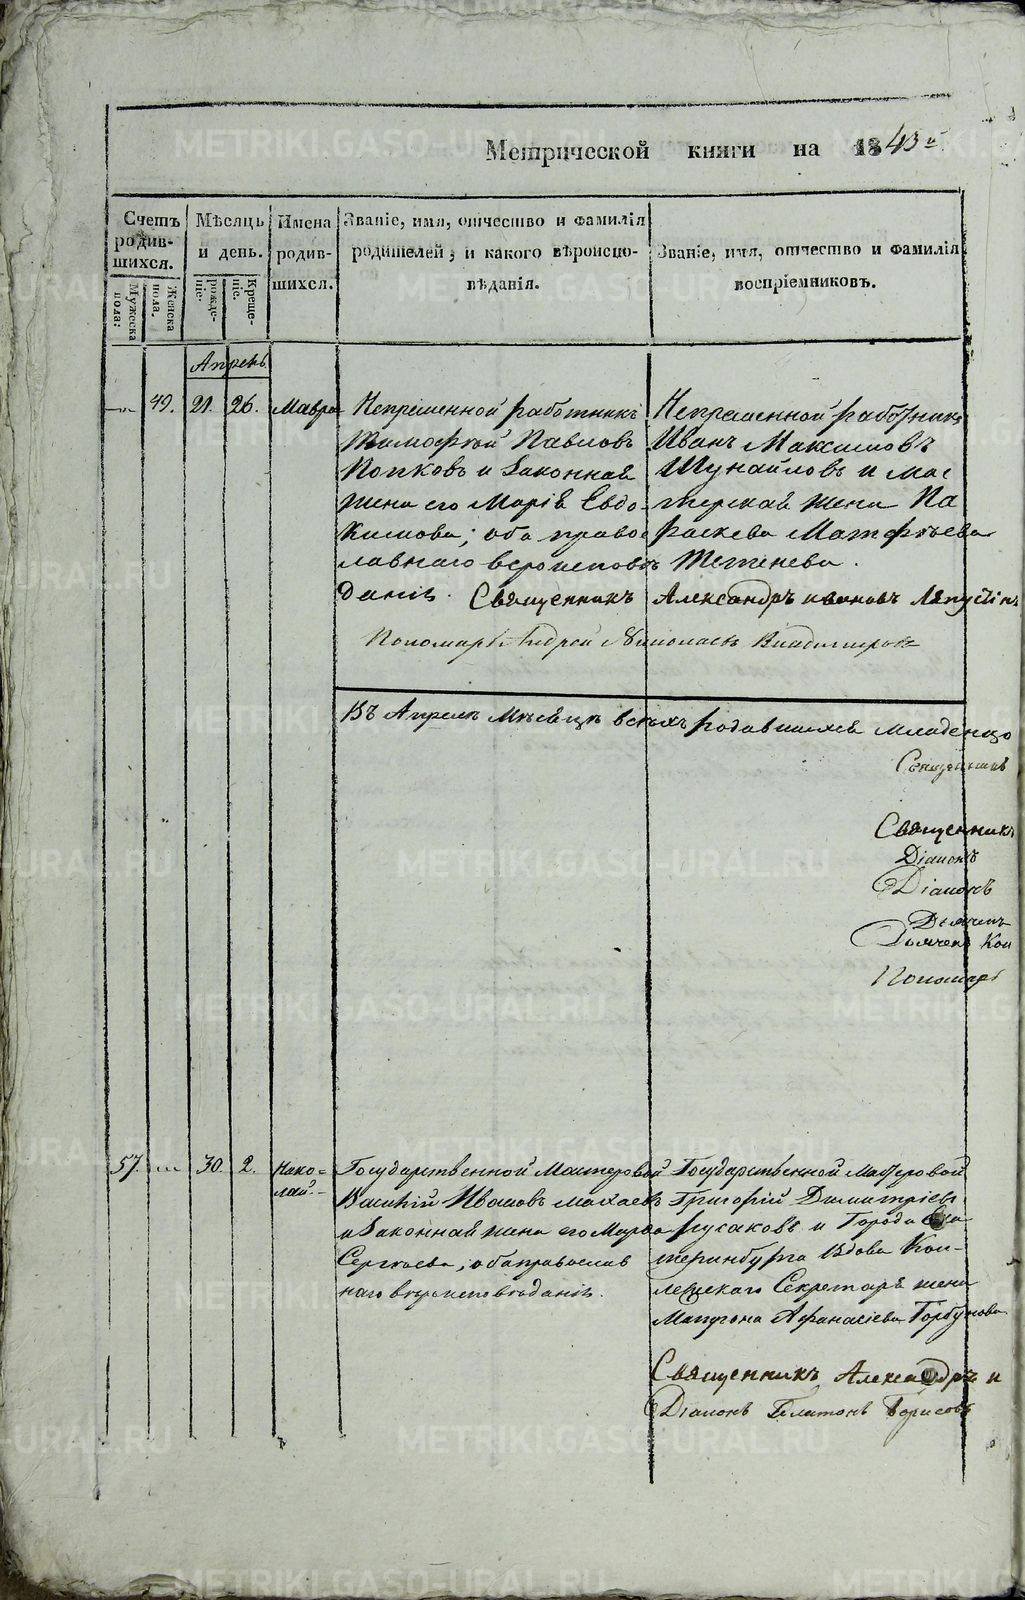 Метрической книги на 1843й
Счетъ родив-шихся.
Мужеска пола:
Женска пола.
Мѣсяцъ и день.
рожде-ніе.
Креще-ніе.
Имена родив-шихся.
Званіе, имя, отчество и фамилія
родителей, и какого вѣроиспо-
вѣданія.
Званіе, имя, отчество и фамилія
воспріемниковъ.
Апрель
49. 21. 26. Мавра
Непременной работникъ
Тимофѣй Павловъ
Попковъ и законная
жена его Марія Евдо-
кимова; оба право
славнаго вероисповѣ
данія.
Непременной работникъ
Иванъ Максимовъ
Шунайловъ и мас
терская жена Па
раскева Матфѣева
Тетенева.
Священникъ Александръ Ивановъ Ляпустинъ
Пономарь Андрей Николаевъ Владимировъ
Въ Апреле Мѣсяцѣ всѣхъ родившихся младенцо
Священникъ
Священникъ
Діаконъ
Діаконъ
Дьячекъ
Дьячекъ Кон
Пономарь
57. 30. 2. Нико-
лай.
Государственной Мастеровой
Василій Ивановъ Махаевъ
и законная жена его Марфа
Сергѣева, оба православ
наго вѣроисповѣданія.
Государственной мастеровой
Григорій Димитріевъ
Русаковъ и Города Ека
теринбурга Вдова Кол-
лежскаго Секретаря жена
Афанасіева Горбунова
Священникъ Александръ И
Діаконъ Платонъ Борисовъ
METRIKI.GASO-URAL.RU